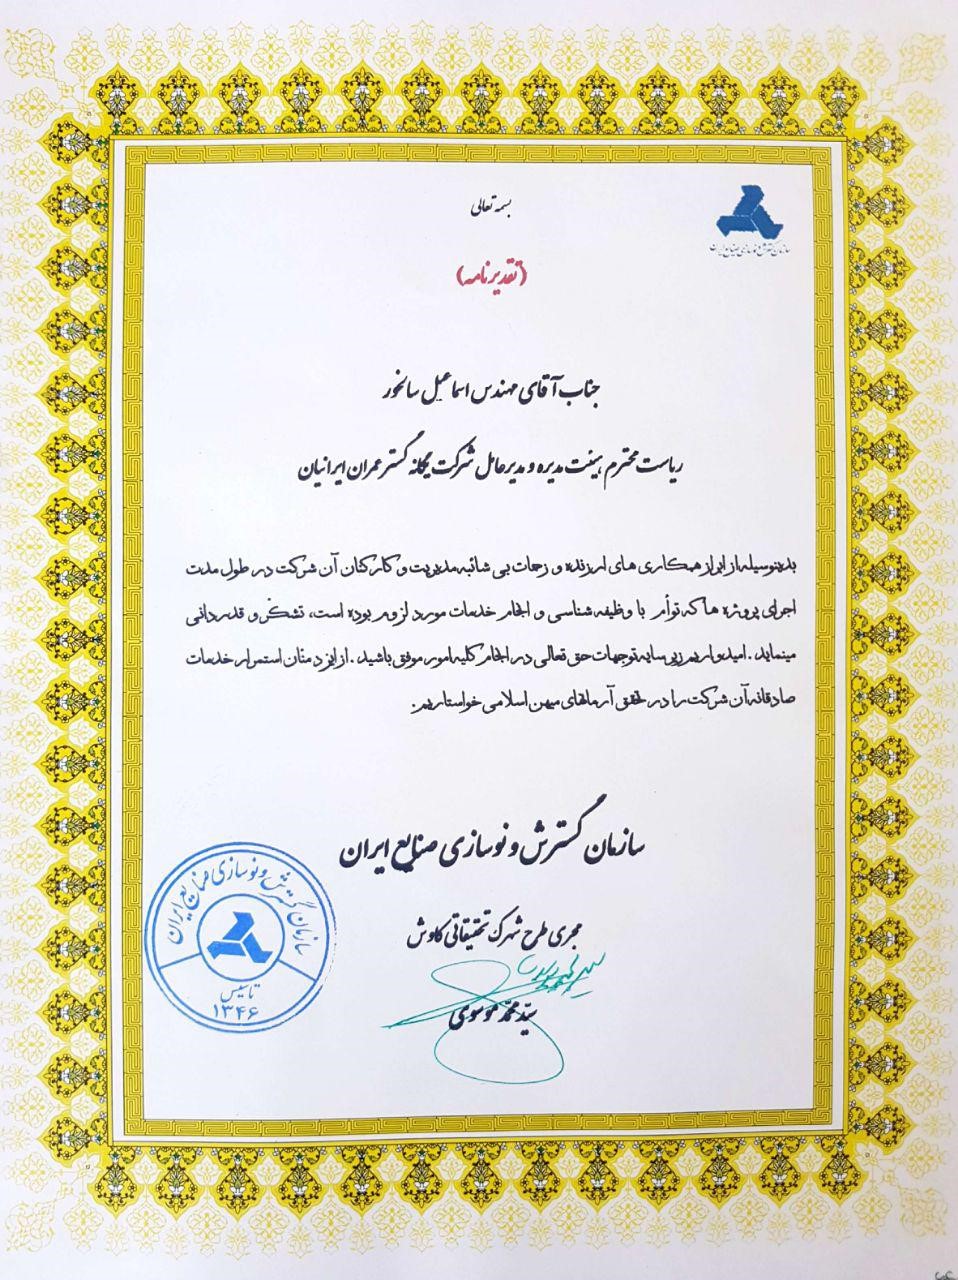 بسمه تعالی
سازمان گسترش و نوسازی صنایع ایران
(تقدیرنامه)
جناب آقای مهندس اسماعیل سانخور
ریاست محترم هیئت مدیره و مدیرعامل شرکت یگانه گستر عمران ایرانیان
بدینوسیله از ابراز همکاری های ارزنده و زحمات بی شائبه مدیریت و کارکنان آن شرکت در طول مدت
اجرای پروژه ها که توأم با وظیفه شناسی و انجام خدمات مورد لزوم بوده است، تشکر و قدردانی
مینماید. امیدواریم زیر سایه توجهات حق تعالی در انجام کلیه امور موفق باشید. از ایزد منان استمرار خدمات
صادقانه آن شرکت را در تحقق آرمانهای میهن اسلامی خواستاریم.
سازمان گسترش و نوسازی صنایع ایران
مجری طرح شهرک تحقیقاتی کاوش
سید محمد موسوی
سازمان گسترش و نوسازی صنایع ایران
تاسیس
۱۳۴۶